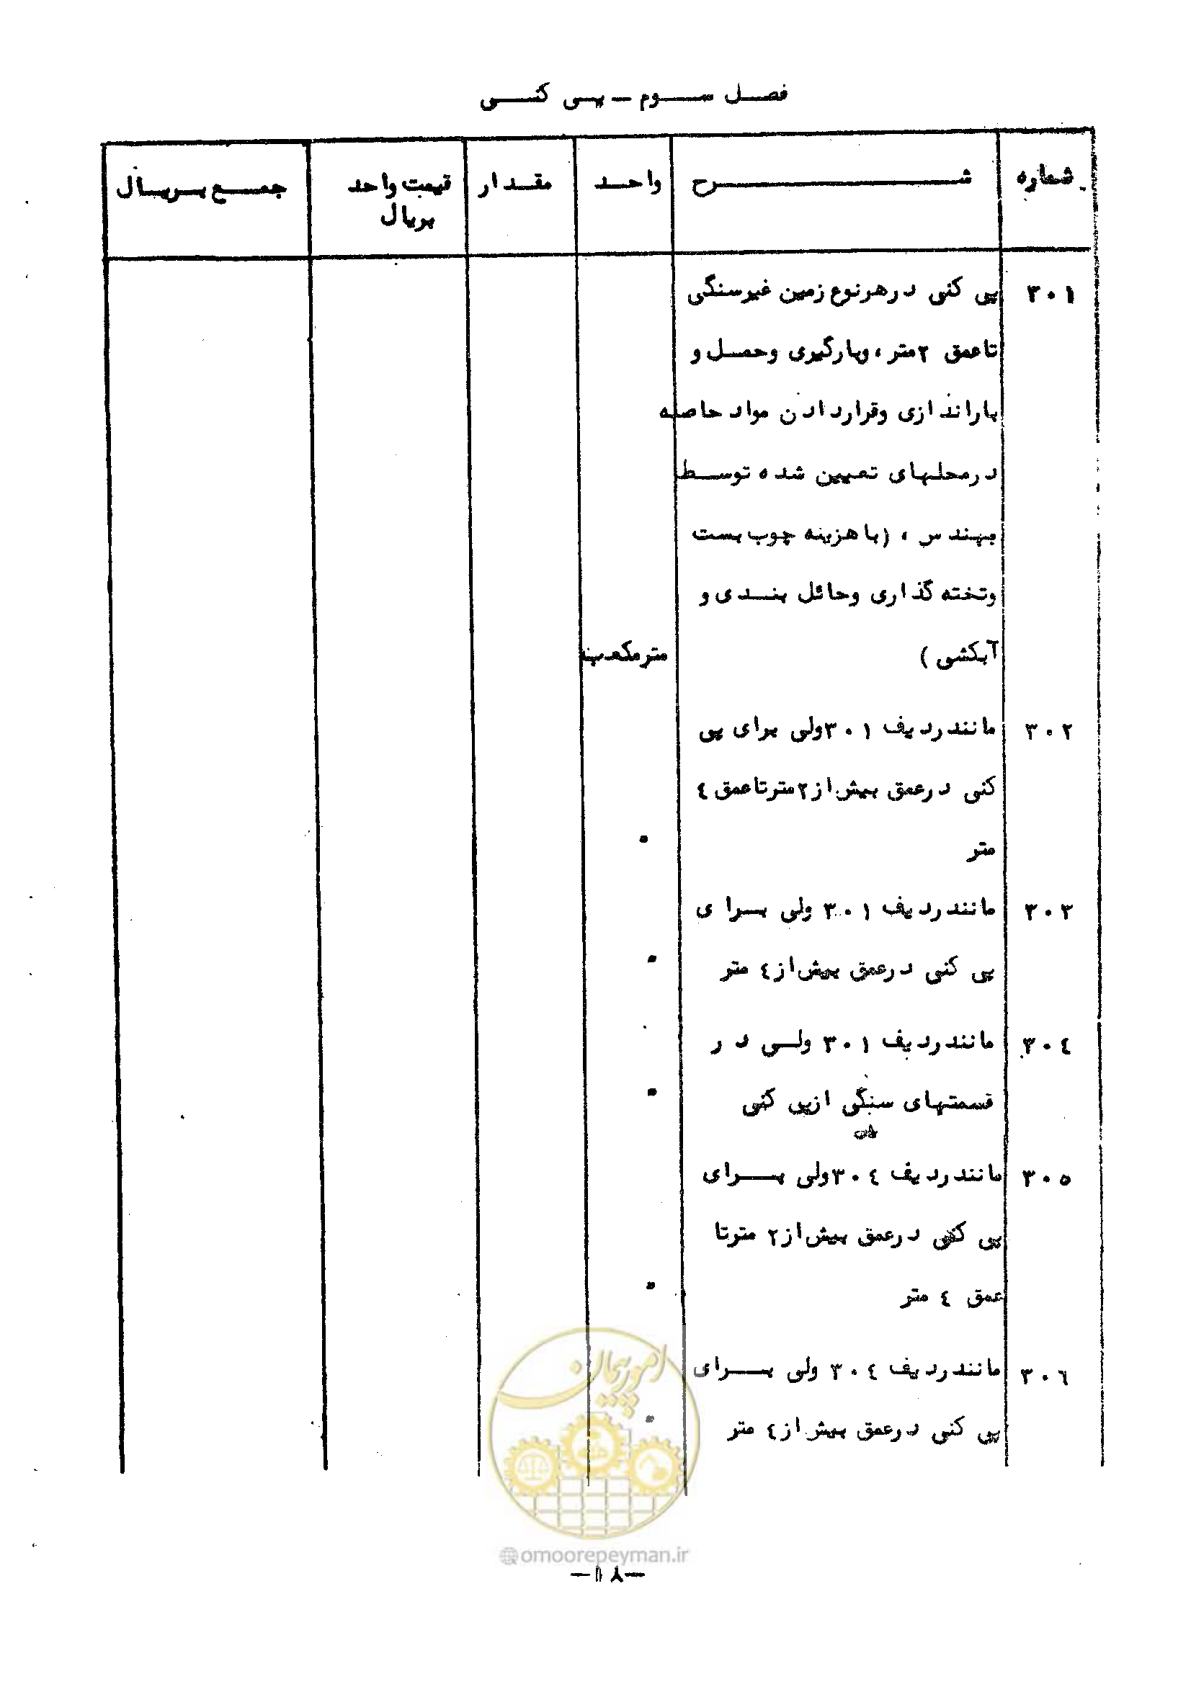 فصل سوم - پی کنی
شماره شرح واحد مقدار قیمت واحد جمع بریال
بریال
۳۰۱ پی کنی در هر نوع زمین غیرسنگی
تا عمق ۲ متر ، وبارگیری وحمل و
باراندازی وقراردادن مواد حاصله
درمحلهای تعیین شده توسط
مهندس ، (با هزینه چوب بست
وتخته گذاری وحائل بندی و
آبکشی ) مترمکعب
۳۰۲ مانند ردیف ۳۰۱ ولی برای پی
کنی درعمق بیش از ۲ متر تا عمق ٤
متر "
۳۰۳ مانند ردیف ۳۰۱ ولی برای
پی کنی درعمق بیش از ٤ متر "
۳۰٤ مانند ردیف ۳۰۱ ولی در
قسمتهای سنگی از پی کنی "
۳۰۵ مانند ردیف ۳۰٤ ولی برای
پی کنی درعمق بیش از ۲ متر تا
عمق ٤ متر "
۳۰٦ مانند ردیف ۳۰٤ ولی برای
پی کنی درعمق بیش از ٤ متر "
امور پیمان
@omoorepeyman.ir
-۱۸-